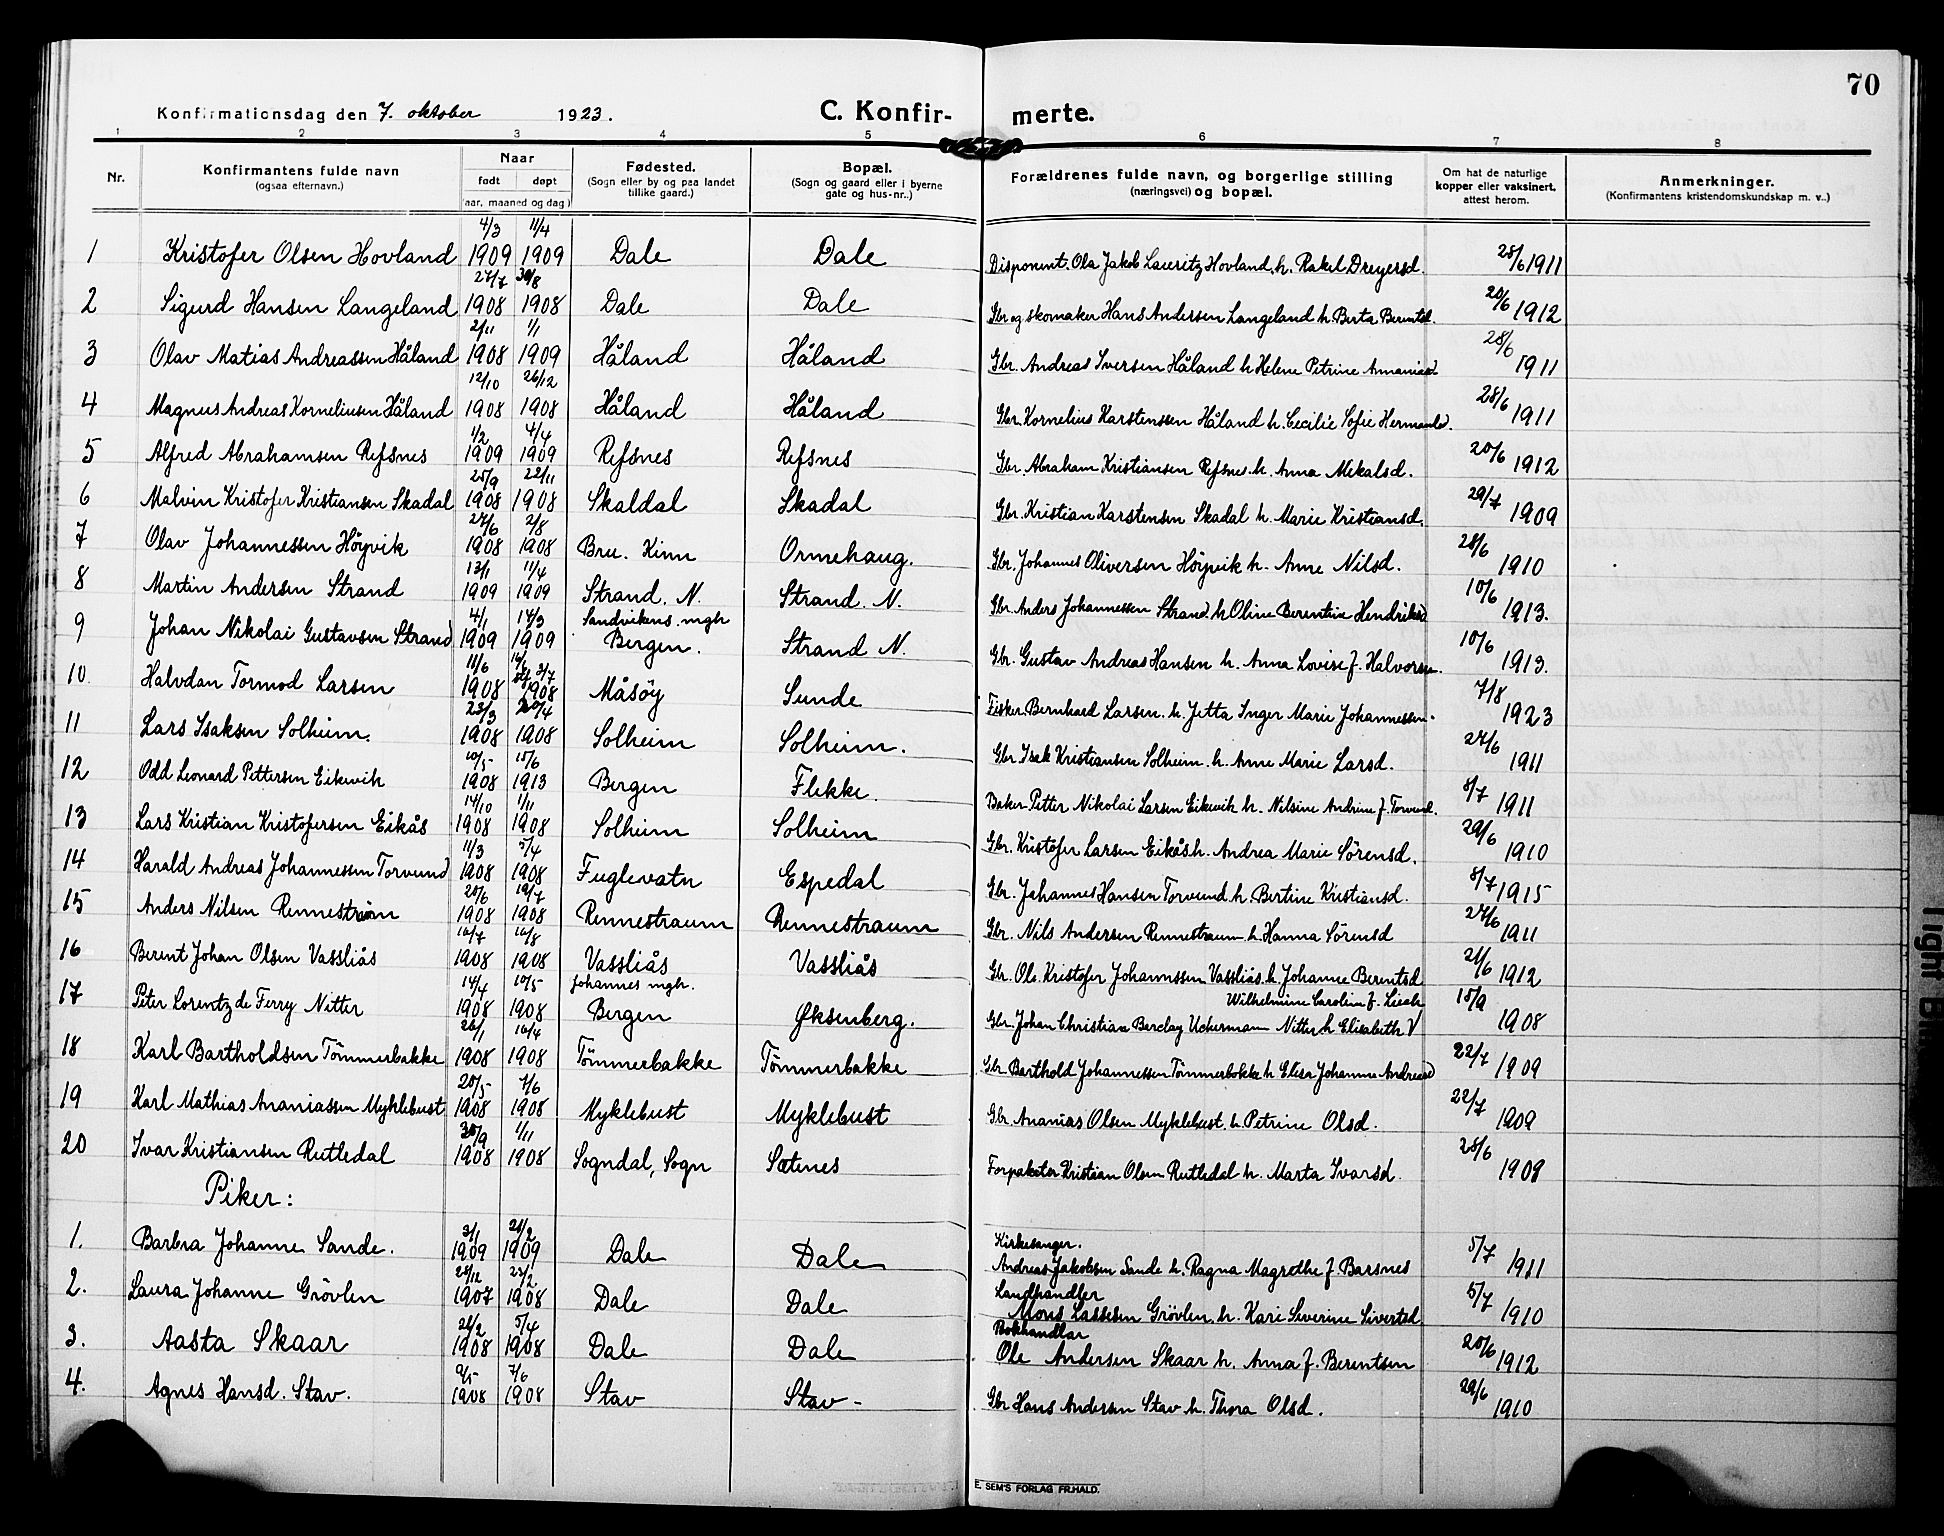 70
Konfirmationsdag den 7. oktober 1923. C. Konfir- merte.
1 2 3 4 5 6 7 8
Nr. Konfirmantens fulde navn (ogsaa efternavn.) Naar født døpt (aar, maaned og dag) Fødested. (Sogn eller by og paa landet tillike gaard.) Bopæl. (Sogn og gaard eller i byerne gate og hus-nr..) Forældrenes fulde navn, og borgerlige stilling (næringsvei) og bopæl. Om hat de naturlige kopper eller vaksinert, attest herom. Anmerkninger. (Konfirmantens kristendomskundskap m. v..)
1 Kristofer Olsen Hovland 4/3 1909 11/4 1909 Dale Dale Disponent. Ola Jakob Lauritz Hovland, h. Rakel Dreyersd. 28/6 1911
2 Sigurd Hansen Langeland 27/7 1908 30/8 1908 Dale Dale Gbr og skomaker Hans Andersen Langeland h. Berta Berentsd. 20/6 1912
3 Olav Matias Andreassen Håland 2/11 1908 1/1 1909 Håland Håland Gbr. Andreas Iversen Håland h Helene Petrine Ananiasd 28/6 1911
4 Magnus Andreas Korneliusen Håland 12/10 1908 26/12 1908 Håland Håland Gbr. Kornelius Karstenssen Håland h. Cecilie Sofie Hermansd. 28/6 1911
5 Alfred Abrahamsen Refsnes 1/2 1909 4/4 1909 Refsnes Refsnes Gbr. Abraham Kristiansen Refsnes h. Anna Mekalsd. 20/6 1912
6 Malvin Kristofer Kristiansen Skadal 25/9 1908 22/11 1908 Skaldal Skadal Gbr. Kristian Karstensen Skadal h. Marie Kristiansd. 29/7 1909
7 Olav Johannessen Höyvik 27/6 1908 2/8 1908 Bru. Kinn Ormehaug. Gbr. Johannes Oliversen Höyvik h. Anne Nilsd. 28/6 1910
8 Martin Andersen Strand 13/1 1909 11/4 1909 Strand. N. Strand. N. Gbr. Anders Johannessen Strand. h Oline Berentine Hendriksd 10/6 1913.
9 Johan Nikolai Gustavsen Strand 4/1 1909 14/3 1909 Sandvikens mgh Bergen. Strand N. Gbr. Gustav Andreas Hansen h. Anna Lovise f. Halvorsen. 10/6 1913.
10. Halvdan Tormod Larsen 11/6 1908 3/7 1908 Måsöy Sunde Fisker Bernhard Larsen. h. Jetta Inger Marie Johannessen. 7/8 1923
11 Lars Isaksen Solheim. 23/3 1908 20/4 1908 Solheim Solheim. Gbr. Isak Kristiansen Solheim. h. Anne Marie Larsd. 27/6 1911
12 Odd Leonard Pettersen Eikevik 10/5 1908 15/6 1913 Bergen Flekke. Baker Petter Nikolai Larsen Eikevik h. Nilsine Andrine f. Torvund. 8/7 1911
13 Lars Kristian Kristofersen Eikås 14/10 1908 1/11 1908 Solheim Solheim Gbr. Kristofer Larsen Eikås h. Andrea Marie Sörensd. 29/6 1910
14 Harald Andreas Johannessen Torvund 11/3 1908 5/4 1908 Fuglevatn Espedal Gbr. Johannes Hansen Torvund h. Bertine Kristiansd. 8/7 1915
15 Anders Nilsen Rennestraum 20/6 1908 19/7 1908 Rennestraum Rennestraum Gbr. Nils Andersen Rennestraum h. Hanna Sörensd 27/6 1911
16 Berent Johan Olsen Vassliås 16/7 1908 16/8 1908 Vassliås Vassliås Gbr. Ole Kristofer Johannssen Vassliås h Johanne Berentsd 21/6 1912
17 Peter Lorentz de Ferry Nitter 14/4 1908 10/5 1908 Johannes mgh. Bergen Øksenberg. Wilhelmine Caroline f. Gbr. Johan Christian Berclay Uckerman Nitter h Elisabeth V 15/9 1908
18 Karl Bartholdsen Tömmerbakke 26/1 1908 16/4 1908 Tömmerbakke Tömmerbakke Gbr. Barthold Johannessen Tömmerbakke h Elisa Johanna Andreasd 22/7 1909
19 Karl Mathias Ananiassen Myklebust 20/5 1908 7/6 1908 Myklebust Myklebust Gbr. Ananias Olsen Myklebust. h. Petrine Olsd. 22/7 1909
20 Ivar Kristiansen Rutledal 30/9 1908 1/11 1908 Sogndal, Sogn Sætenes Forpakter Kristian Olsen Rutledal h. Marta Ivarsd. 28/6 1909
Piker:
1. Barbra Johanne Sande. 3/1 1909 21/2 1909 Dale Dale Kirkesanger. Andreas Jakobsen Sande h. Ragna Magrethe f. Barsnes 5/7 1911
2. Laura Johanne Grövlen 28/12 1907 23/2 1908 Dale Dale Landhandler Mons Lassesen Grövlen h. Kari Severine Sivertsd 5/7 1910
3. Aasta Skaar 21/2 1908 5/4 1908 Dale Dale Bokhandlar Ole Andersen Skaar h. Anna f. Berentsen 20/6 1912
4. Agnes Hansd. Stav. 9/5 1908 7/6 1908 Stav Stav - Gbr Hans Andersen Stav h. Thora Olsd. 29/6 1910
E. SEM'S FORLAG FR.HALD.